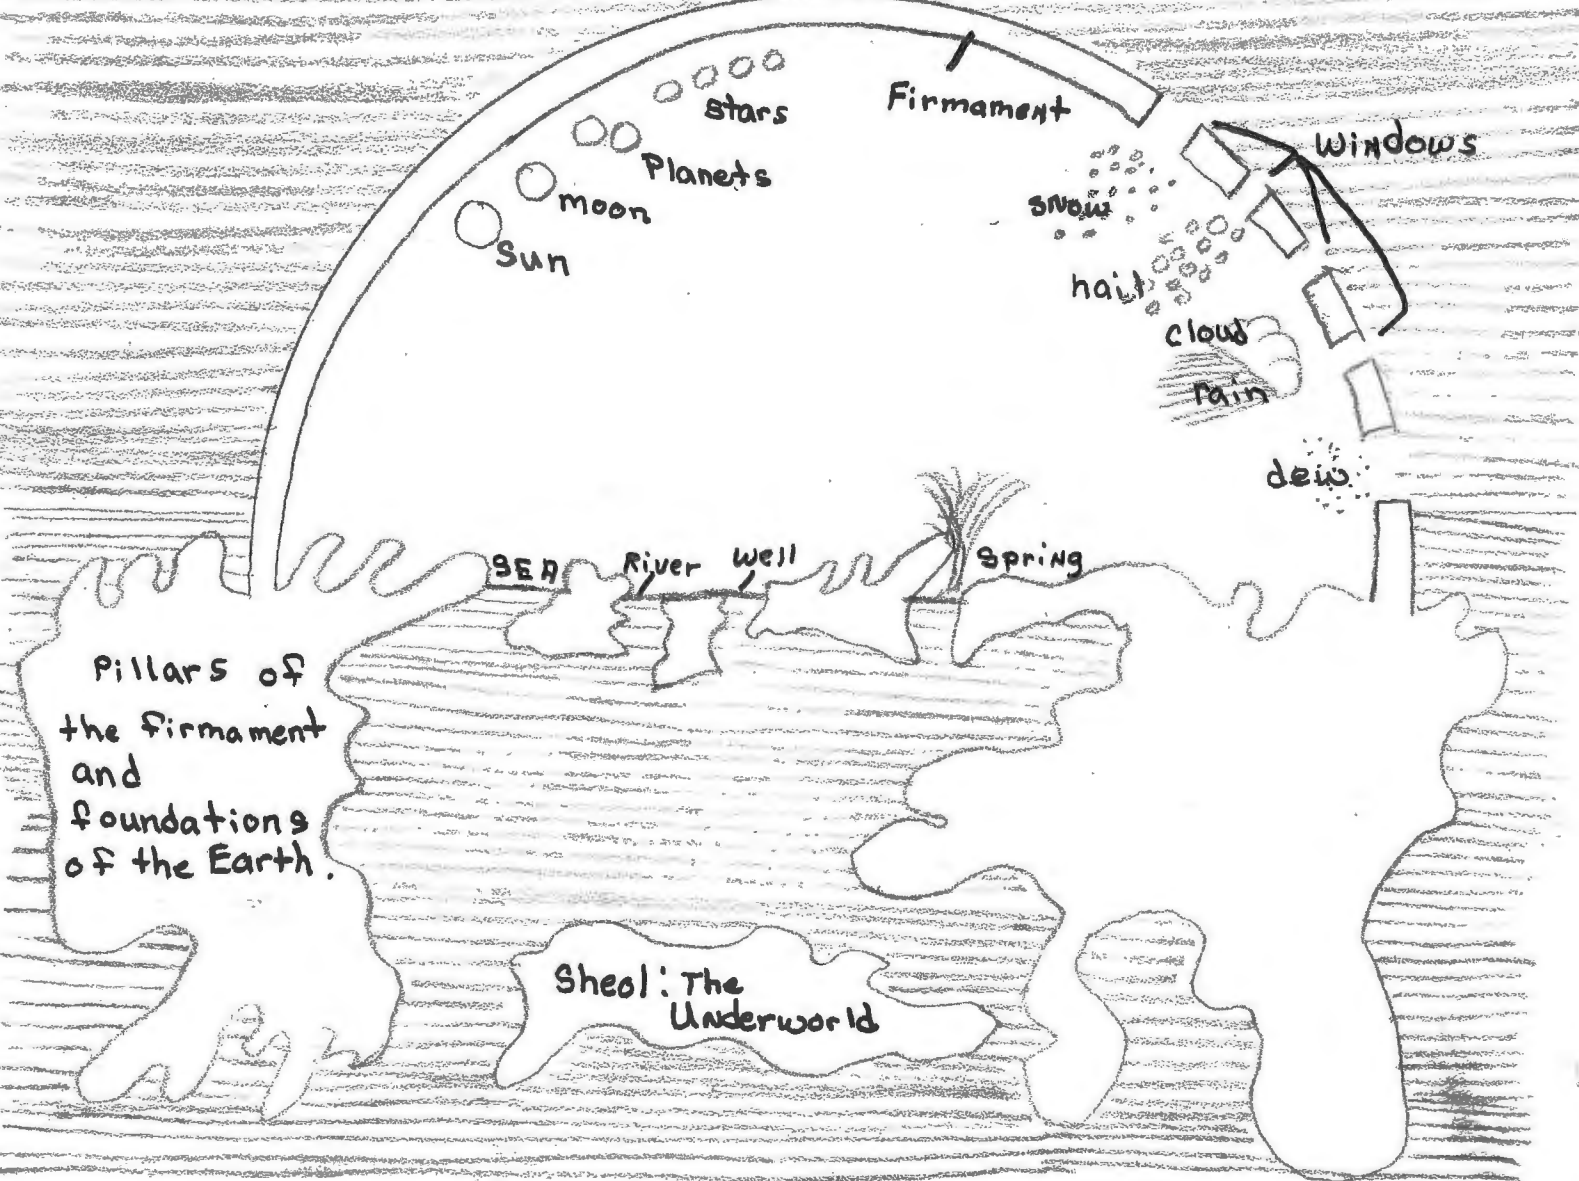 Firmament
Windows
stars
Planets
moon
Sun
snow
hail
cloud
rain
dew
SEA
River
Well
Spring
Pillars of
the firmament
and
foundations
of the Earth.
Sheol: The
Underworld